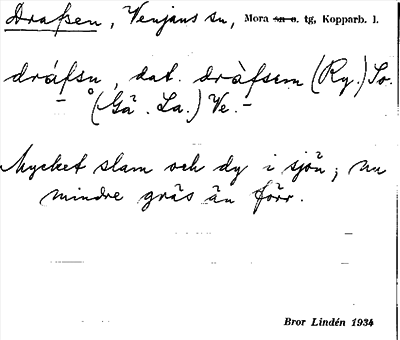 Drafsen, Venjans sn, Mora sn o. tg, Kopparb. l.
dráfsn, dat. dràfsem (Ry.) So.
– å (Gä. La.) Ve. –
Mycket slam och dy i sjön; nu
mindre gräs än förr.
Bror Lindén 1934